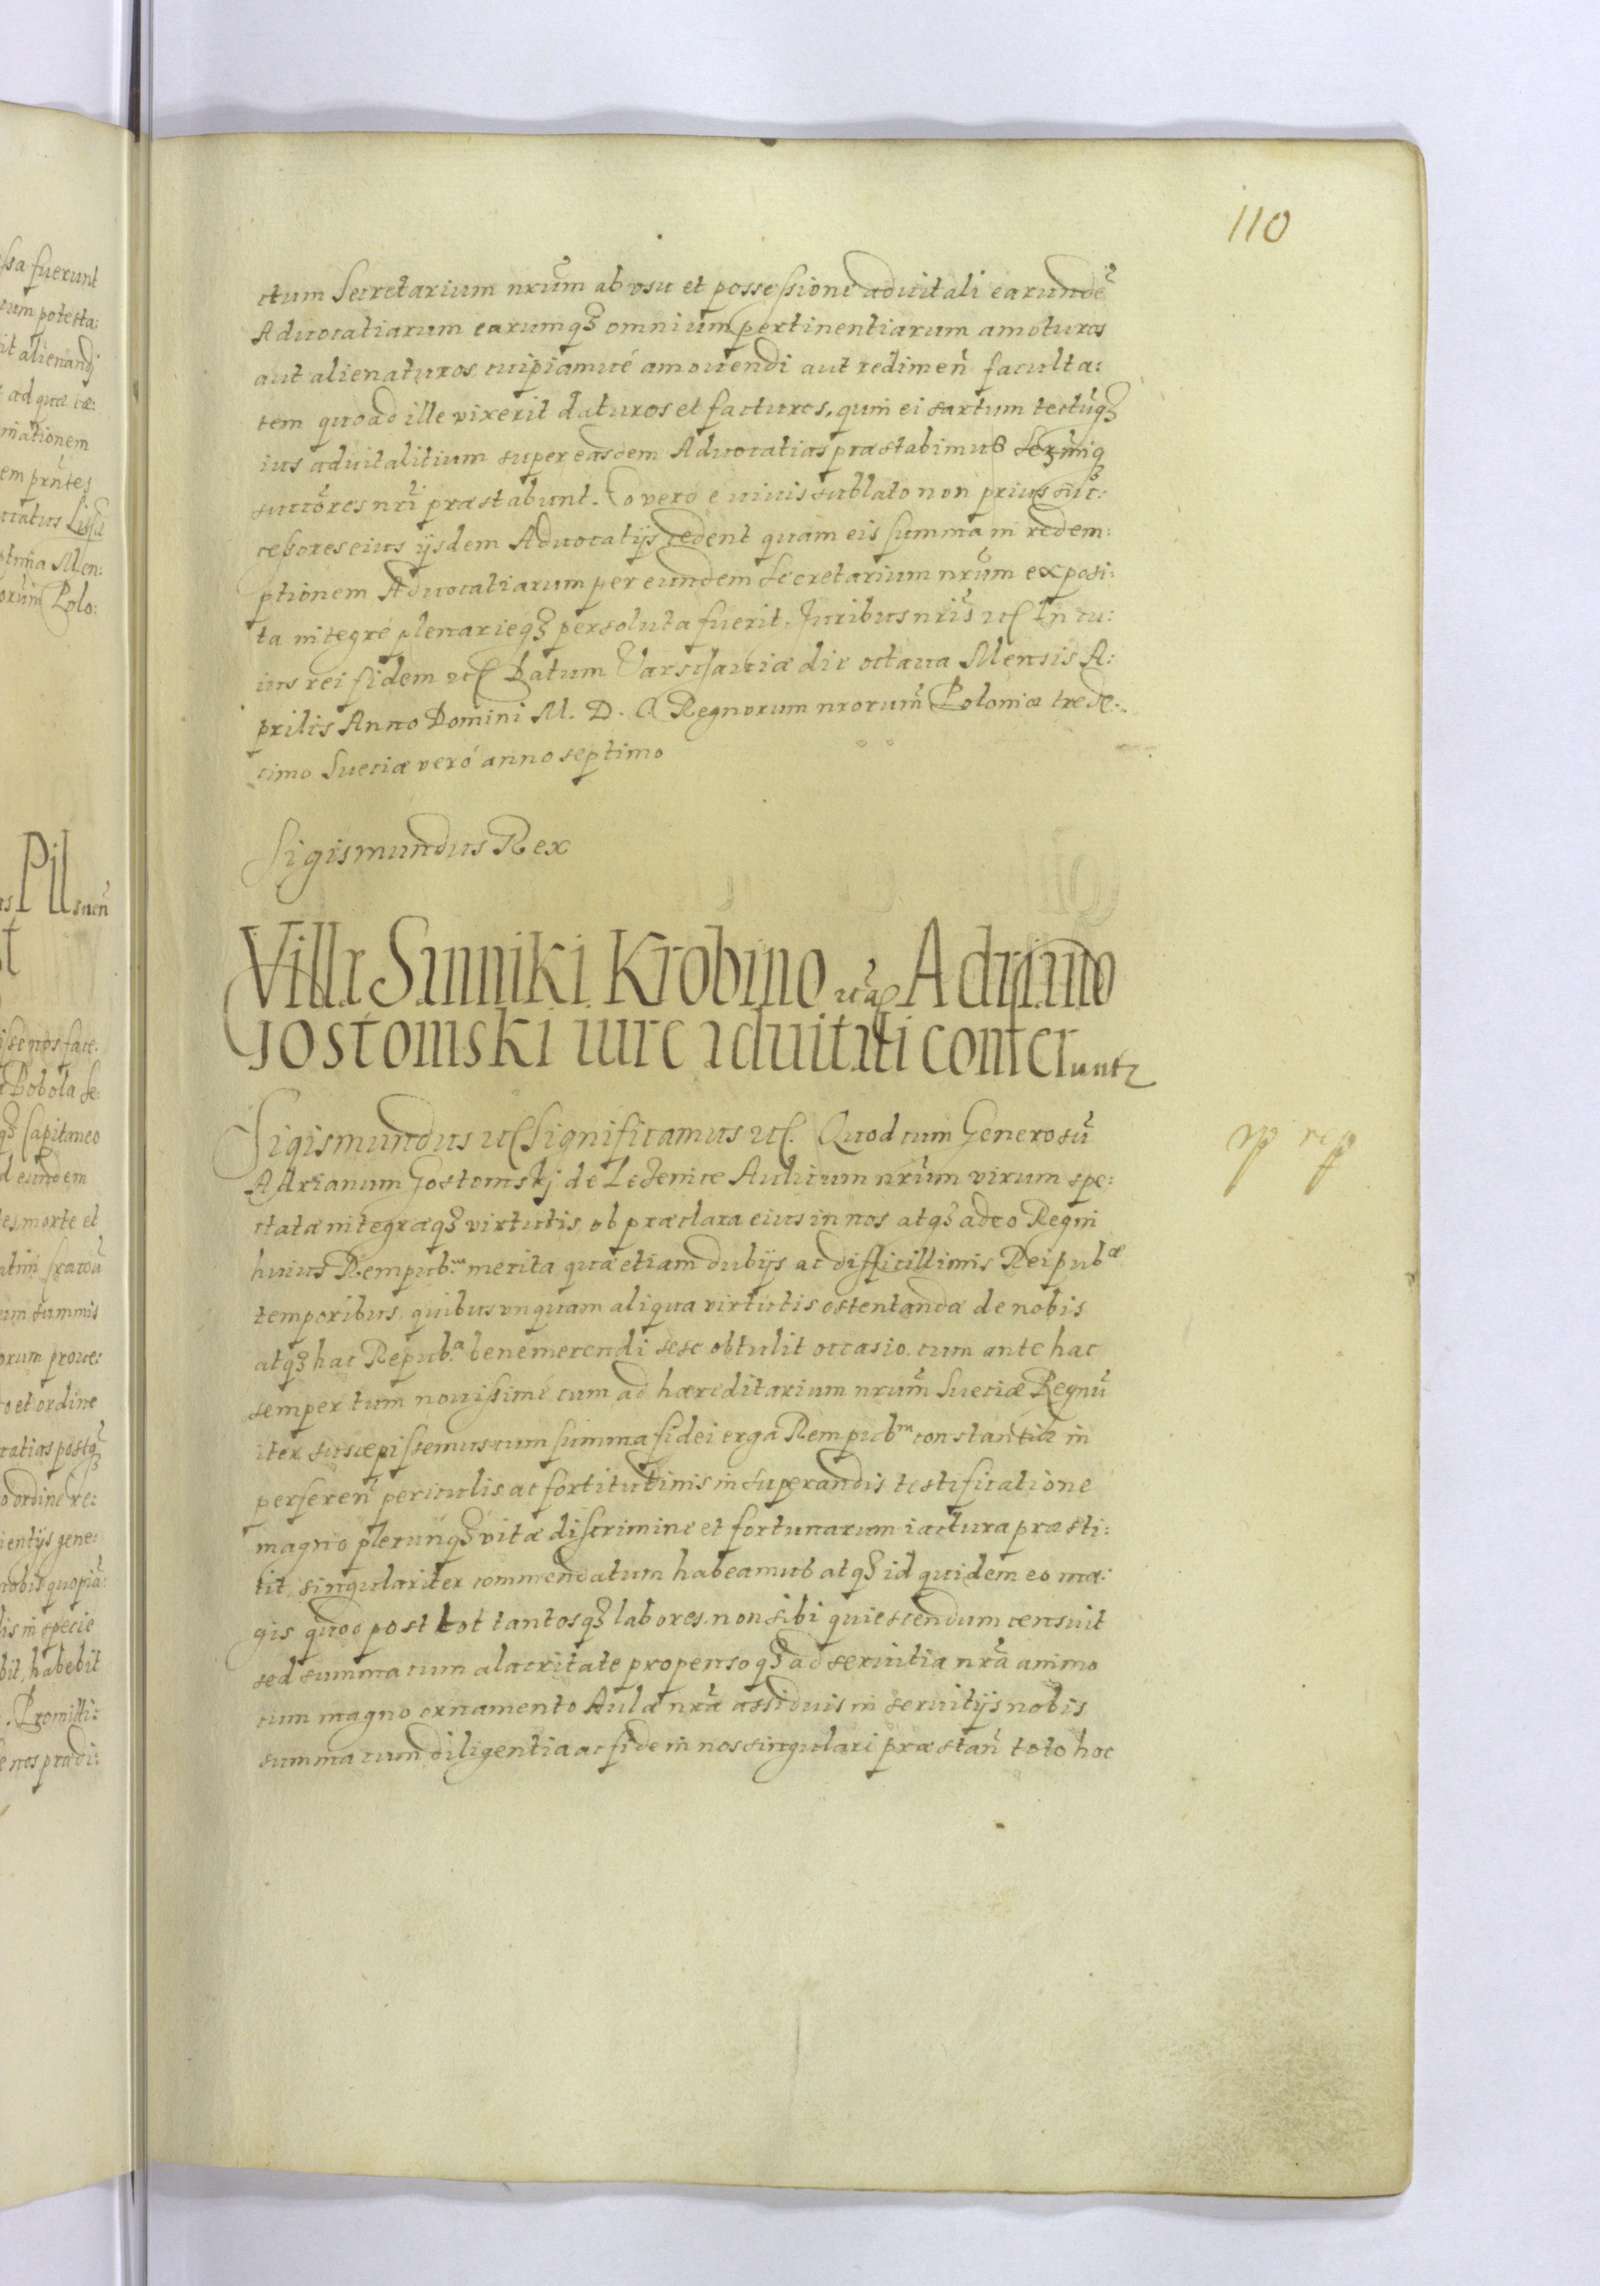 110
ctum Secretarium nrũm ab vsu et possessione aduitali earundẽ
Aduocatiarum earumqꝫ omnium pertinentiarum amoturos
aut alienaturos, cuipiamué amouendi aut redimen̄ faculta:
tem quoad ille vixerit daturos et facturos, quin ei sartum tectũqꝫ
ius aduitalitium super easdem Aduocatias præstabimus
succõres nr̃i præstabunt. Eo vero e viuis sublato non prius suc:
cessores eius ijsdem Aduocatijs cedent quam eis summa in redem:
ptionem Aduocatiarum per eundem Secretarium nrũm exposi:
ta integre plenarieqꝫ persoluta fuerit. Juribus nrĩs etc̃ In cu:
ius rei fidem etc̃ Datum Varschauiæ die octaua Mensis A:
prilis Anno Domini M. D. C Regnorum nrorum̃ Poloniæ trede:
cimo Sueciæ veró anno septimo
Sigismundus Rex
Villæ Sanniki Krobino etc̃ Adriano
Gostomski iure aduitali conferuntr
Sigismundus etc̃ Significamus etc̃. Quod cum Generosũ
Adrianum Gostomskj de Ledenice Aulicum nrũm virum spe:
ctatæ integræqꝫ virtutis, ob præclara eius in nos atqꝫ adeo Regni
huius Rempub.m merita, quæ etiam dubijs ac difficillimis Reipub.æ
temporibus, quibus vnquam aliqua virtutis ostentandæ de nobis
atqꝫ hac Repub.a benemerendi sese obtulit occasio, cum ante hac
semper tum nouissimé cum ad hæreditarium nrũm Sueciæ Regnũ
iter suscepissemus cum summa fidei erga Rempub.m constantiæ in
perferen̄ periculis ac fortitudinis in superandis testificatione
magno plerunqꝫ vitæ discrimine et fortunarum iactura præsti:
tit, singulariter commendatum habeamus atqꝫ id quidem eo ma:
gis quod post tot tantosqꝫ labores, non sibi quiescendum censuit
sed summa cum alacritate propensoqꝫ ad seruitia nrã animo
cum magno ornamento Aulæ nrã assiduis in seruitijs nobis
summa cum diligentia ac fide in nos singulari præstan̄ toto hoc